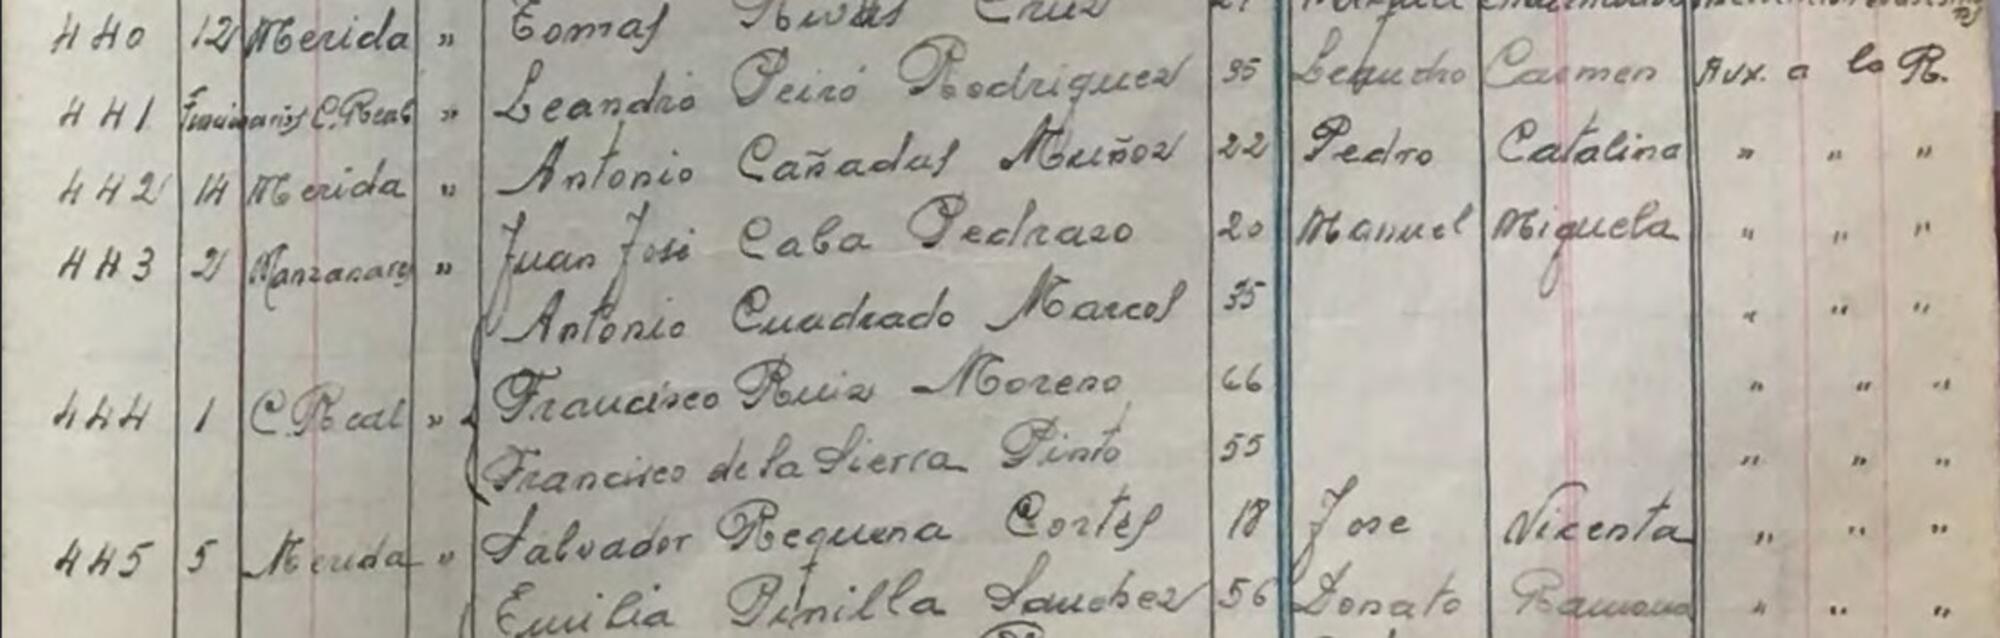 440 12 Merida " Tomas Rivas Cruz
441 Funcionarios C. Real " Leandro Peiró Rodriguez 35 Leandro Carmen Aux. a la R.
442 14 Merida " Antonio Cañadas Muñoz 22 Pedro Catalina " " "
443 2 Manzanares " Juan José Caba Pedrazo 20 Manuel Miguela " " "
Antonio Cuadrado Marcos 35 " " "
444 1 C. Real " Francisco Ruiz Moreno 66 " " "
Francisco de la Sierra Pinto 55 " " "
445 5 Merida " Salvador Requena Cortés 18 Jose Vicenta " " "
Emilia Pinilla Sanchez 56 Donato Ramona " " "